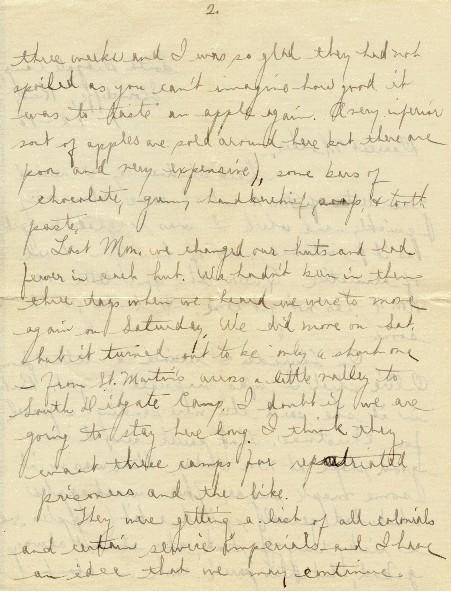 2.
three weeks and I was so glad they had not
spoiled as you can't imagine how good it
was to taste an apple again. (A very inferior
sort of apples are sold around here but they are
poor and very expensive), some bars of
chocolate, gum, handkerchief, soap, & tooth
paste.
Last Mon. we changed our huts and had
fewer in each hut. We hadn't been in them
three days when we heard we were to move
again on Saturday. We did move on Sat.
but it turned out to be only a short one
– from St. Martin's across a little valley to
South Camp. I doubt if we are
going to stay here long. I think they
want these camps for repatriated
prisoners and the like.
They were getting a list of all colonials
and certain service Imperials and I have
an idea that we may continue